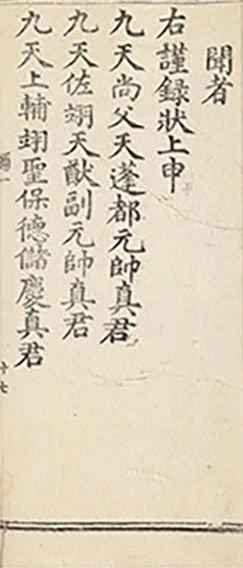 聞者
右謹録狀上申
九天尚父天蓬都元帥真君
九天佐翊天猷副元帥真君
九天上輔翊聖保德儲慶真君
十七